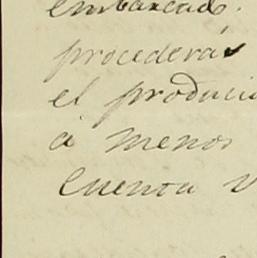 embarcado.
procederás
el produci
a menos
cuenta v